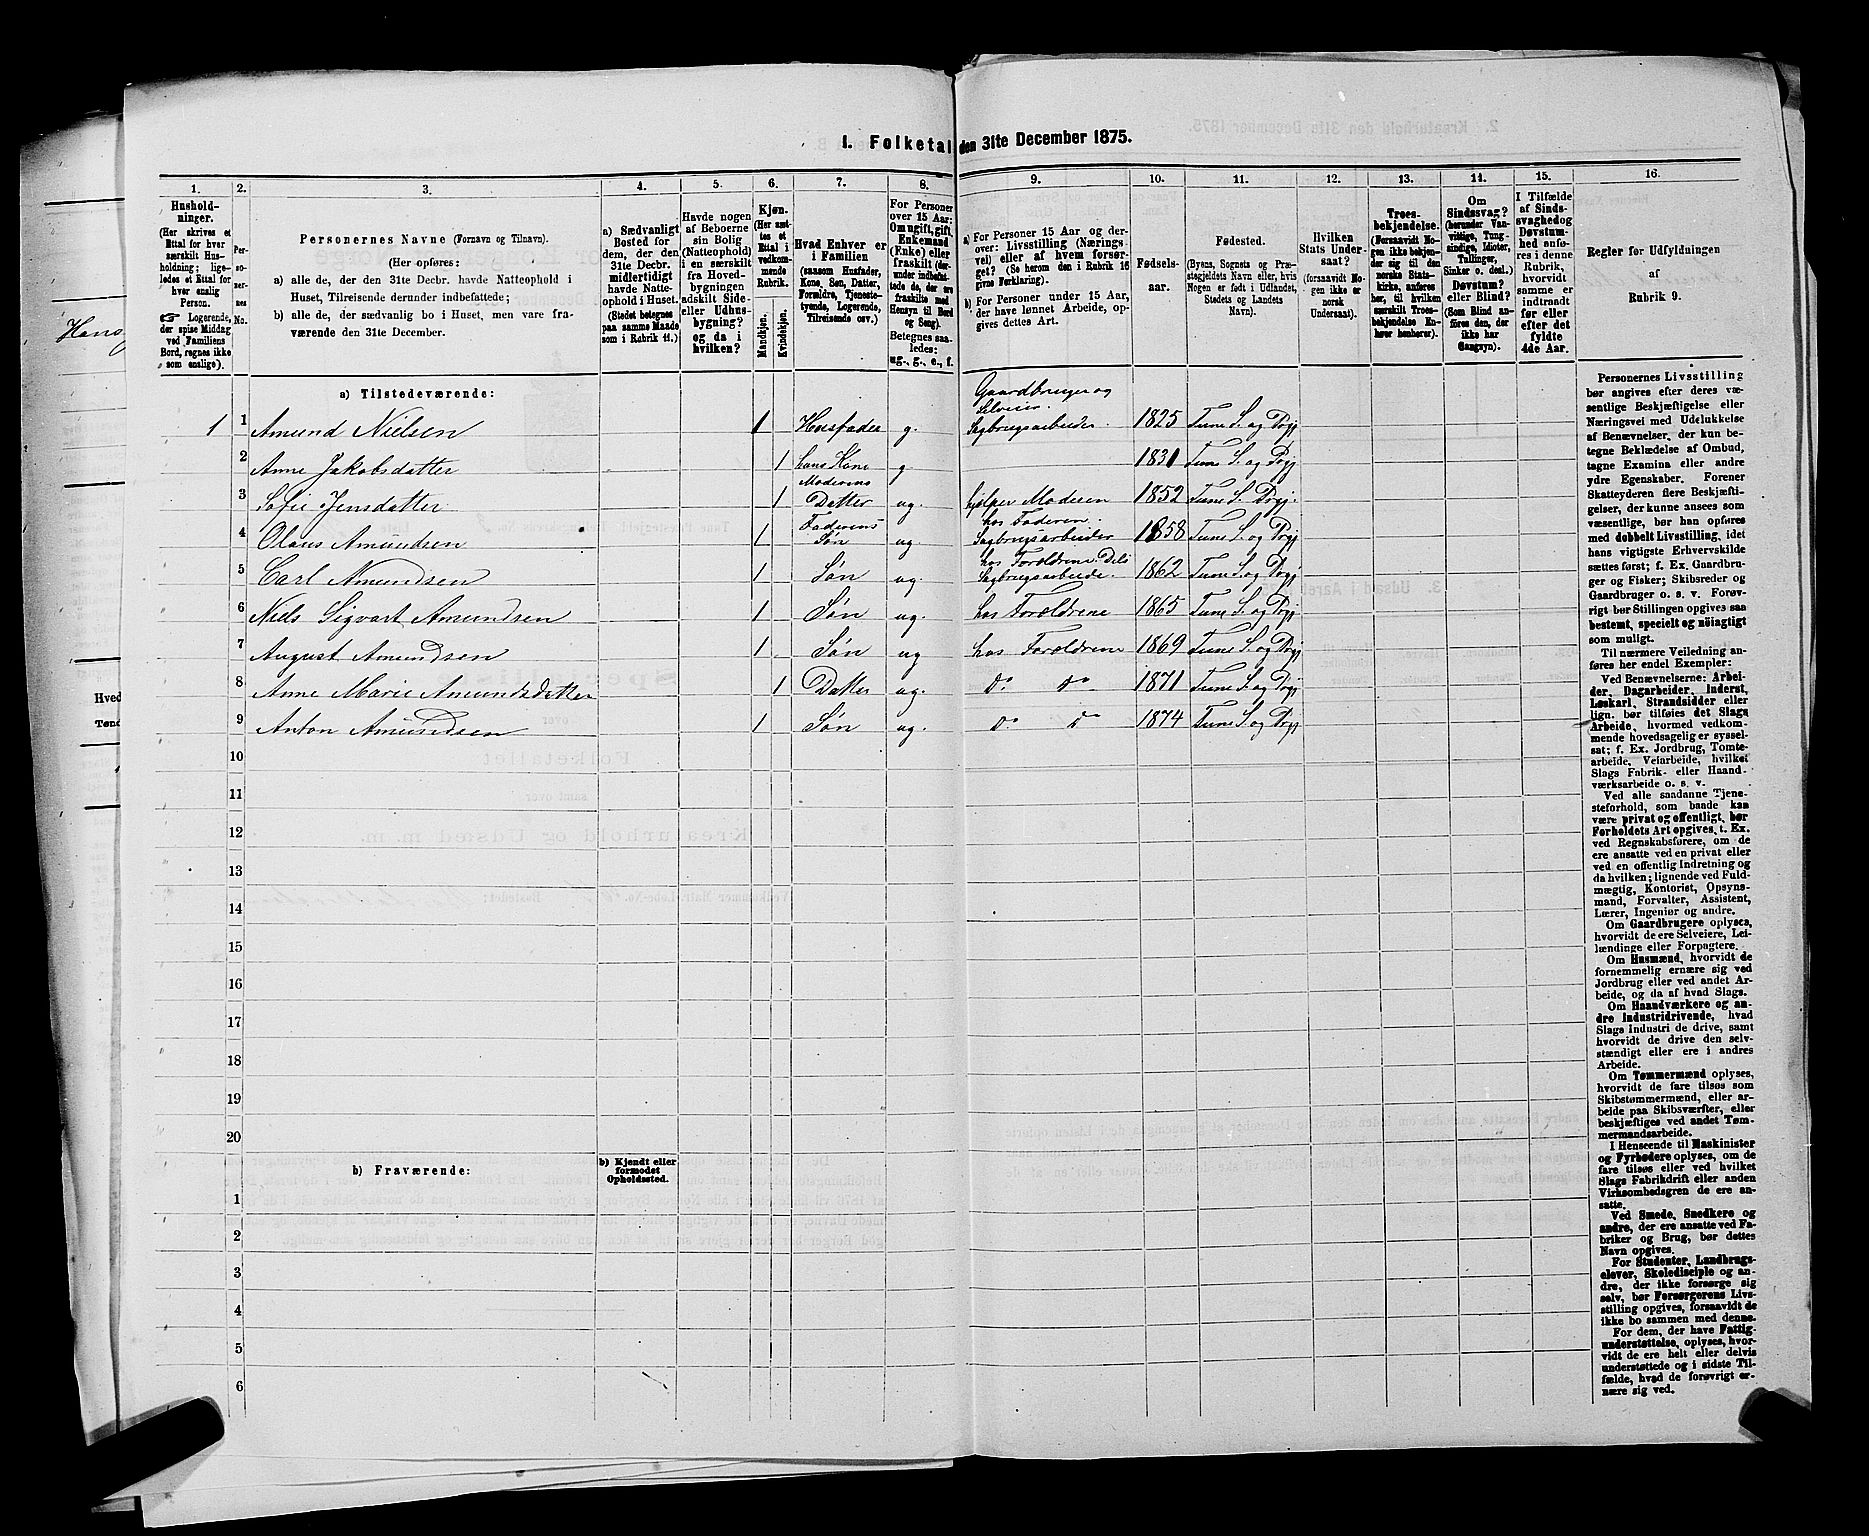 1. Folketal den 31te December 1875.
1.
Hushold-
ninger.
(Her skrives et
Ettal for hver
særskilt Hus-
holdning; lige-
ledes et Ettal for
hver enslig
Person.
☞ Logerende,
der spise Middag
ved Familiens
Bord, regnes ikke
som enslige).
2.
Per-
so-
ner-
nes
No.
3.
Personernes Navne (Fornavn og Tilnavn).
(Her opføres:
a) alle de, der den 31te Decbr. havde Natteophold i
Huset, Tilreisende derunder indbefattede;
b) alle de, der sædvanlig bo i Huset, men vare fra-
værende den 31te December.
4.
a) Sædvanligt
Bosted for
dem, der den
31te Decbr.
midlertidigt
havde Natte-
ophold i Huset.
(Stedet betegnes
paa samme Maade
som i Rubrik 11.)
5.
Havde nogen
af Beboerne
sin Bolig
(Natteophold)
i en særskilt
fra Hoved-
bygningen
adskilt Side-
eller Udhus-
bygning?
og da i
hvilken?
6.
Kjøn.
(Her sæt-
tes et
Ettal i
vedkom-
mende
Rubrik.
Mandkjøn.
Kvindekjøn.
7.
Hvad Enhver er
i Familien
(saasom Husfader,
Kone, Søn, Datter,
Forældre, Tjeneste-
tyende, Logerende,
Tilreisende osv.)
8.
For Personer
over 15 Aar:
Om ugift, gift,
Enkemand
(Enke) eller
fraskilt (der-
under indbefat-
tede de, der ere
fraskilte med
Hensyn til Bord
og Seng).
Betegnes saa-
ledes:
ug., g., e., f.
9.
a) For Personer 15 Aar og der-
over: Livsstilling (Nærings-
vei) eller af hvem forsør-
get? (Se herom den i Rubrik 16
givne Forklaring).
b) For Personer under 15 Aar,
der have lønnet Arbeide, op-
gives dettes Art.
10.
Fødsels-
aar.
11.
Fødested.
(Byens, Sognets og Præ-
stegjeldets Navn eller, hvis
Nogen er født i Udlandet,
Stedets og Landets
Navn).
12.
Hvilken
Stats Under-
saat?
(forsaavidt No-
gen ikke er
norsk
Undersaat).
13.
Troes-
bekjendelse.
(Forsaavidt No-
gen ikke bekjen-
der sig til den
norske Stats-
kirke, anføres
her, til hvilken
særskilt Troes-
bekjendelse En-
hver henhører).
14.
Om
Sindssvag?
(herunder Van-
vittige, Tung-
sindige, Idioter,
Tullinger,
Sinker o. desl.)
Døvstum?
eller Blind?
(Som Blind an-
føres den, der
ikke har
Gangsyn).
15.
I Tilfælde
af Sinds-
svaghed og
Døvstum-
hed anfø-
res i denne
Rubrik,
hvorvidt
samme er
indtraadt
før eller
efter det
fyldte
4de Aar.
16.
Regler for Udfyldningen
af
Rubrik 9.
a) Tilstedeværende:
1 1 Amund Nielsen 1 Husfader g. Gaardbruger og Selveier. Sagbrugsarbeider. 1825 Tune S. og Prgj
2 Anne Jakobsdatter 1 hans Kone g 1831 Tune S. og Prgj
3 Sofie Jensdatter 1 Moderens Datter ug. hjelper Moderen 1852 Tune S. Prgj.
4 Olaus Amundsen 1 Faderens Søn ug hos Faderen. Sagbrugsarbeider 1858 Tune S. og Prgj
5 Carl Amundsen 1 Søn ug. hos Forældrene. Dels Sagbrugsarbeide. 1862 Tune S. og Prgj
6 Niels Sigvart Amundsen 1 Søn ug. hos Forældrene 1865 Tune S. og Prgj
7 August Amundsen 1 Søn ug hos Forældrene 1869 Tune S. og Prgj
8 Anne Marie Amundsdatter 1 Datter ug. do do 1871 Tune S. og Prgj
9 Anton Amundsen 1 Søn ug. do do 1874 Tune S. og Prgj
10
11
12
13
14
15
16
17
18
19
20
b) Fraværende:
b) Kjendt eller
formodet
Opholdssted.
1
2
3
4
5
6
Personernes Livsstilling
bør angives efter deres væ-
sentlige Beskjæftigelse eller
Næringsvei med Udelukkelse
af Benævnelser, der kun be-
tegne Beklædelse af Ombud,
tagne Examina eller andre
ydre Egenskaber. Forener
Skatteyderen flere Beskjæfti-
gelser, der kunne ansees som
væsentlige, bør han opføres
med dobbelt Livsstilling, idet
hans vigtigste Erhvervskilde
sættes først; f. Ex. Gaardbru-
ger og Fisker; Skibsreder og
Gaardbruger o. s. v. Forøv-
rigt bør Stillingen opgives saa
bestemt, specielt og nøiagtigt
som muligt.
Til nærmere Veiledning an-
føres her endel Exempler:
Ved Benævnelserne: Arbei-
der, Dagarbeider, Inderst,
Løskarl, Strandsidder eller
lign. bør tilføies det Slags
Arbeide, hvormed vedkom-
mende hovedsagelig er syssel-
sat; f. Ex. Jordbrug, Tomte-
arbeide, Veiarbeide, hvilket
Slags Fabrik- eller Haand-
værksarbeide o. s. v.
Ved alle saadanne Tjene-
steforhold, som baade kan
være privat og offentligt, bør
Forholdets Art opgives, t. Ex.
ved Regnskabsførere, om de
ere ansatte ved en privat eller
ved en offentlig Indretning og
da hvilken; lignende ved Fuld-
mægtig, Kontorist, Opsyns-
mand, Forvalter, Assistent,
Lærer, Ingeniør og andre.
Om Gaardbrugere oplyses,
hvorvidt de ere Selveiere, Lei-
lændinge eller Forpagtere.
Om Husmænd, hvorvidt de
fornemmelig ernære sig ved
Jordbrug eller ved andet Ar-
beide, og da af hvad Slags.
Om Haandværkere og an-
dre Industridrivende, hvad
Slags Industri de drive, samt
hvorvidt de drive den selv-
stændigt eller ere i andres
Arbeide.
Om Tømmermænd oplyses,
hvorvidt de fare tilsøs som
Skibstømmermænd, eller ar-
beide paa Skibsværfter, eller
beskjæftiges ved andet Tøm-
mermandsarbeide.
I Henseende til Maskinister
og Fyrbødere oplyses, om de
fare tilsøs eller ved hvilket
Slags Fabrikdrift eller anden
Virksomhedsgren de ere an-
satte.
Ved Smede, Snedkere og
andre, der ere ansatte ved Fa-
briker og Brug, bør dettes
Navn opgives.
For Studenter, Landbrugs-
elever, Skoledisciple og an-
dre, der ikke forsørge sig
selv, bør Forsørgerens Livs-
stilling opgives, forsaavidt de
ikke bo sammen med denne.
For dem, der have Fattig-
understøttelse, oplyses, hvor-
vidt de ere helt eller delvis
understøttede og i sidste Til-
fælde, hvad de forøvrigt er-
nære sig ved.